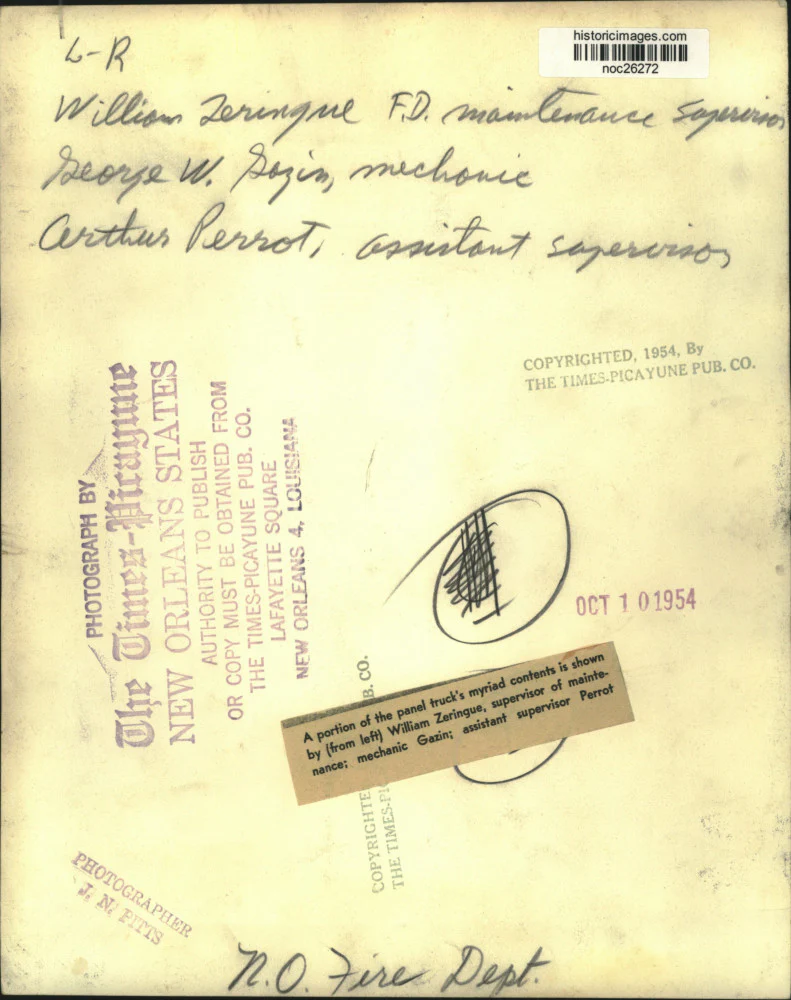 historicimages.com
noc26272
L-R
William Zeringue F.D. maintenance supervisor
George W. Gazin, mechanic
Arthur Perrot, assistant supervisor
COPYRIGHTED, 1954, By
THE TIMES-PICAYUNE PUB. CO.
PHOTOGRAPH BY
The Times-Picayune
NEW ORLEANS STATES
AUTHORITY TO PUBLISH
OR COPY MUST BE OBTAINED FROM
THE TIMES-PICAYUNE PUB. CO.
LAFAYETTE SQUARE
NEW ORLEANS 4, LOUISIANA
OCT 10 1954
A portion of the panel truck's myriad contents is shown
by (from left) William Zeringue, supervisor of mainte-
nance; mechanic Gazin; assistant supervisor Perrot
COPYRIGHTE
B. CO.
THE TIMES-PI
PHOTOGRAPHER
J. N. PITTS
N.O. Fire Dept.